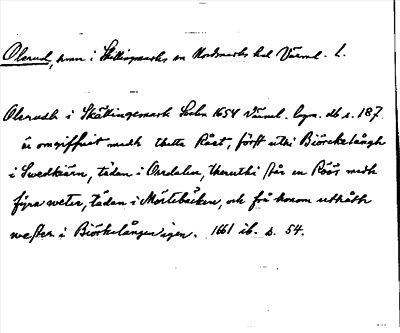 Olerud, hmn i Skillingmarks sn Nordmarks hd Värml. l.
Olerudh i Skällingemark Sochn 1654 Värml. lypn. db s. 187
är omgifftuit medh thetta Råst, först uthi Biörckelångh
i Swedkiärn, tädan i Orrdalen, theruthi står en Röös medh
fyra weter, tädan i Mörtebäcken, och frå honom uthåth
westen i Biörkelången igen. 1661 ib. s. 54.